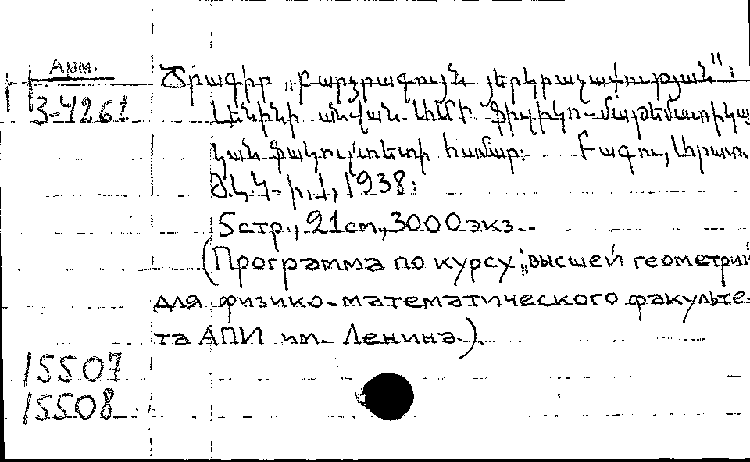 Арм.
3-4261
Ծրագիր „բարձրագույն յերկրաչափության":
Լենինի անվան ԱՊԻ Ֆիզիկո-մաթեմատիկա
կան ֆակուլտետի համար: Բագու,
ԺԿԿ- 1938:
5 стр., 21 cm, 3000 экз.
(Программа по курсу „высшей геометрии
для физико-математического факульте-
та АПИ им. Ленина).
15507
15508